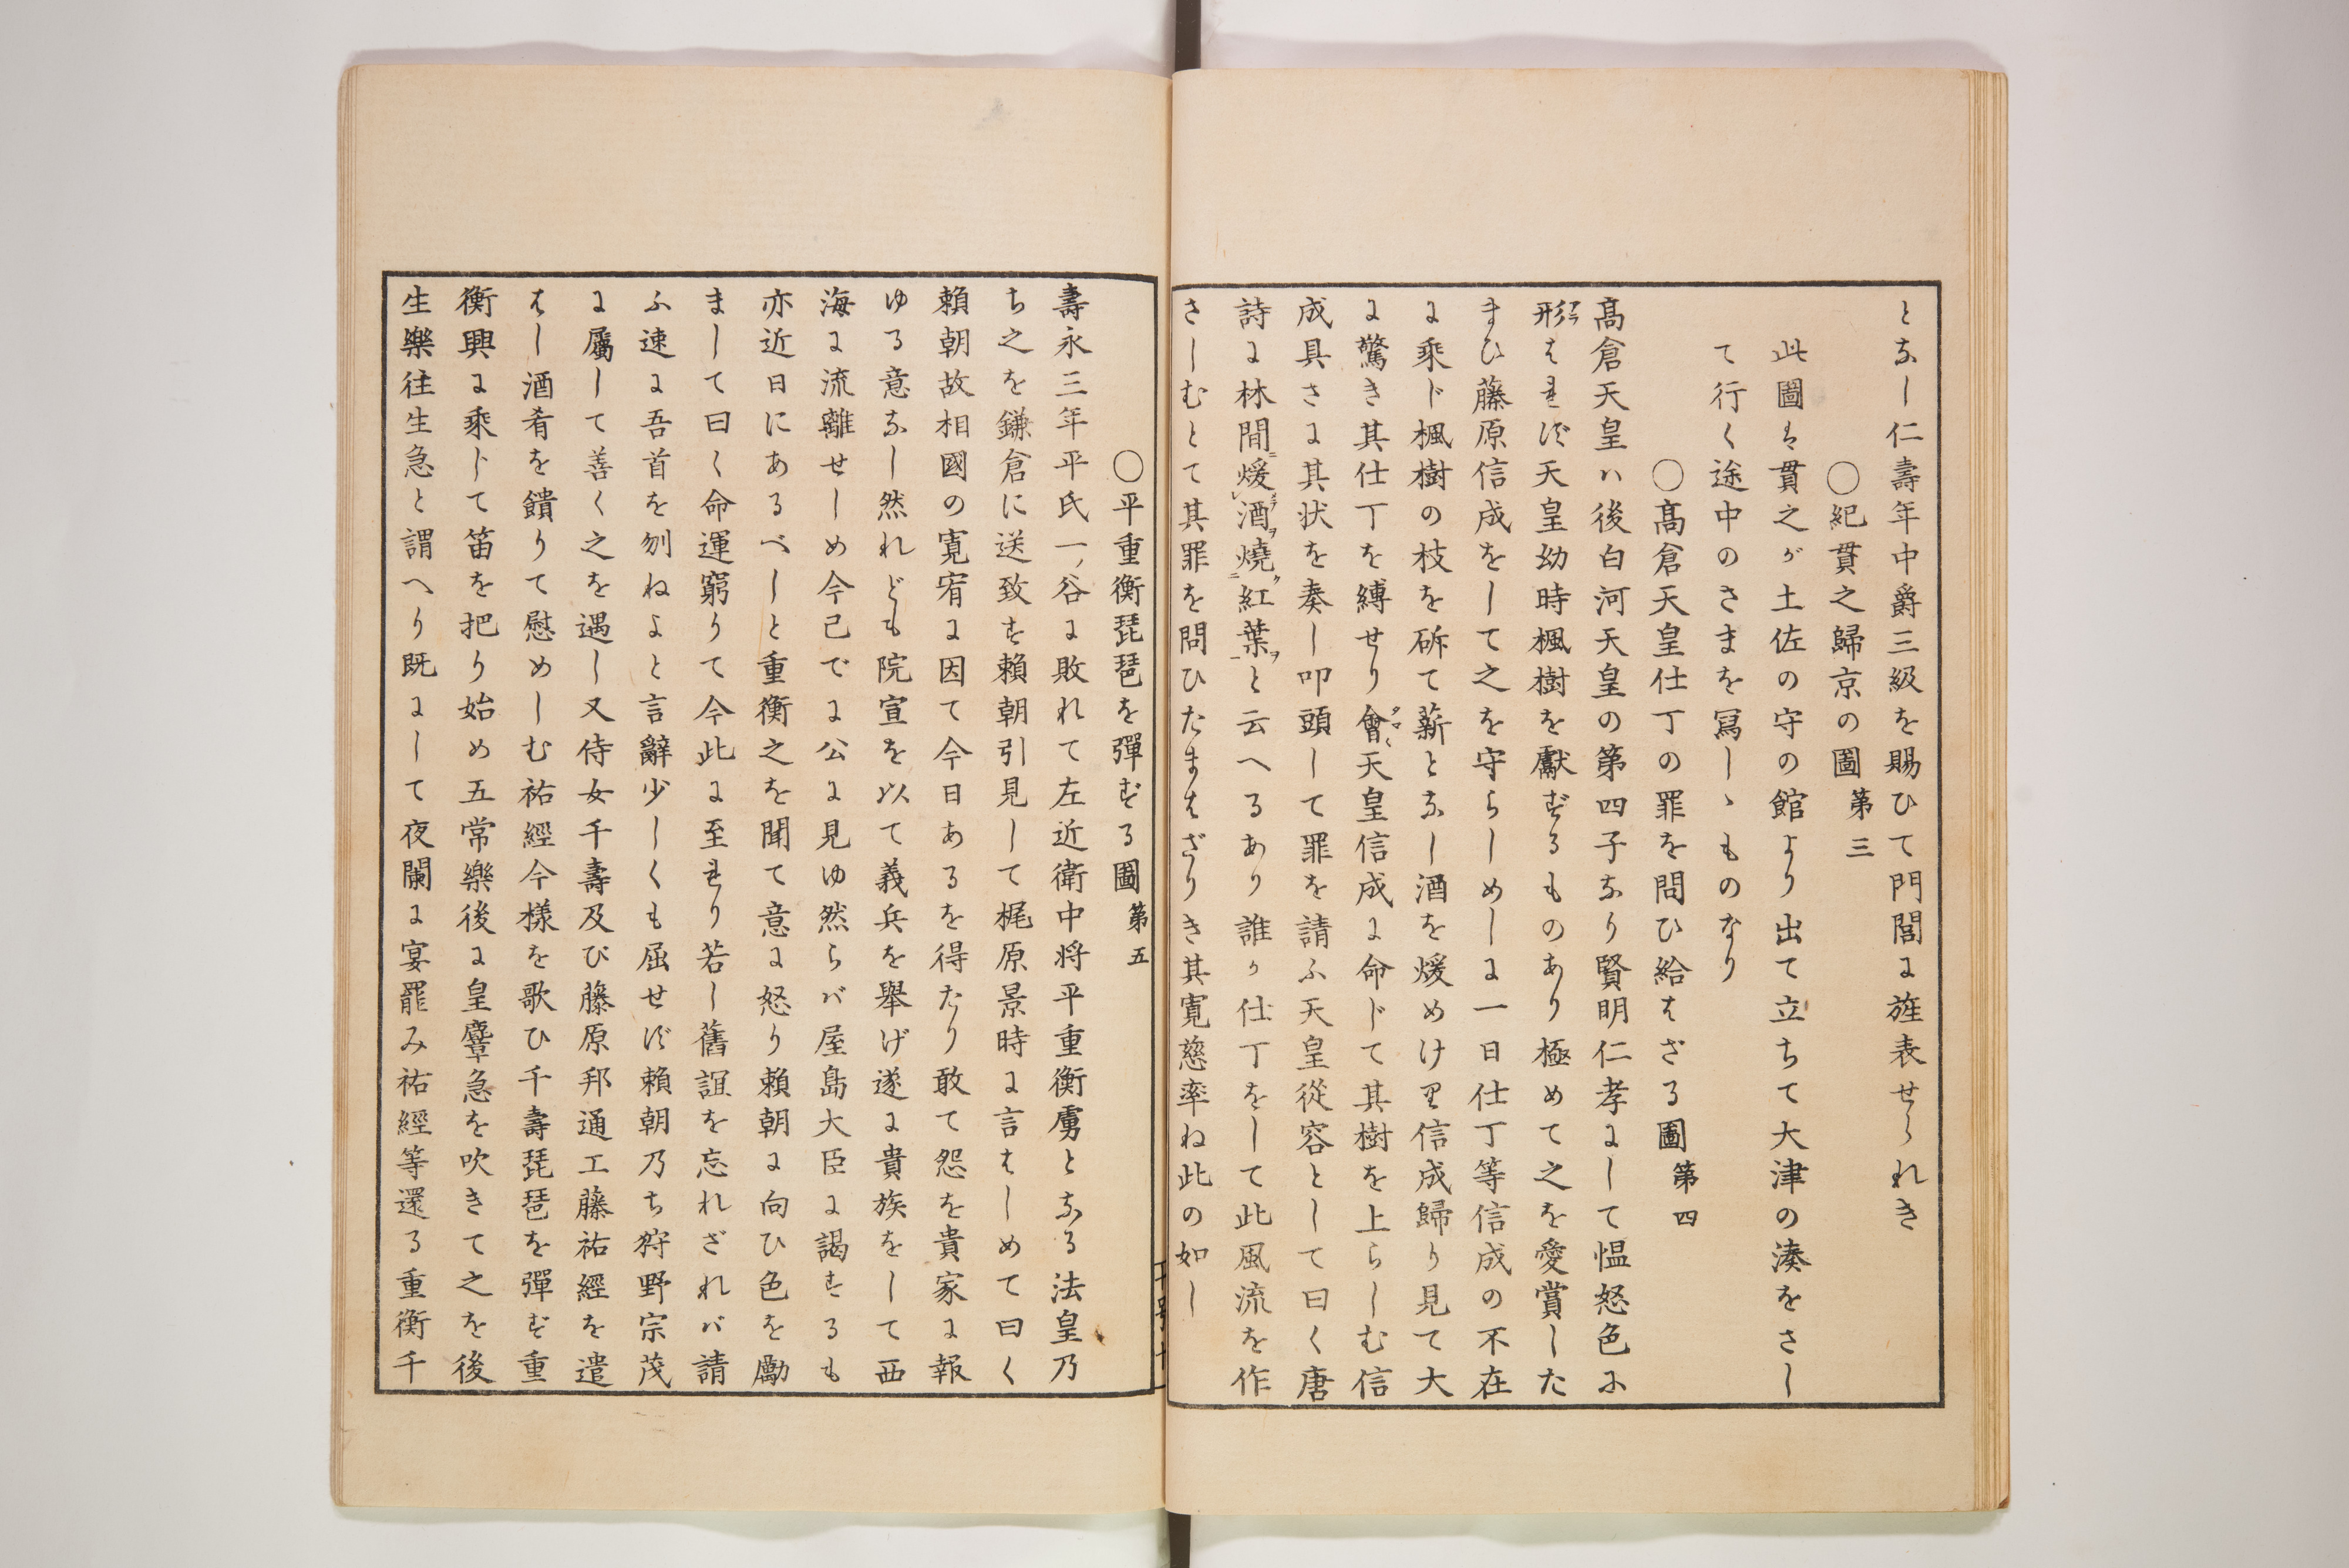 となし仁壽年中爵三級を賜ひて門閭に旌表せられき
○紀貫之歸京の圖 第三
此圖は貫之が土佐の守の館より出て立ちて大津の湊をさし
て行く途中のさまを冩しゝものなり
○髙倉天皇仕丁の罪を問ひ給はざる圖 第四
髙倉天皇ハ後白河天皇の第四子なり賢明仁孝にして愠怒色に
形はれず天皇幼時楓樹を獻ずるものあり極めて之を愛賞した
まひ藤原信成をして之を守らしめしに一日仕丁等信成の不在
に乘じ楓樹の枝を斫て薪となし酒を煖めけり信成歸り見て大
に驚き其仕丁を縛せり會天皇信成に命じて其樹を上らしむ信
成具さに其状を奏し叩頭して罪を請ふ天皇從容として曰く唐
詩に林間煖酒燒紅葉と云へるあり誰か仕丁をして此風流を作
さしむとて其罪を問ひたまはざりき其寛慈率ね此の如し
○平重衡琵琶を彈ずる圖 第五
壽永三年平氏一ノ谷に敗れて左近衛中将平重衡虜となる法皇乃
ち之を鎌倉に送致す賴朝引見して梶原景時に言はしめて曰く
賴朝故相國の寛宥に因て今日あるを得たり敢て怨を貴家に報
ゆる意なし然れども院宣を以て義兵を舉げ遂に貴族をして西
海に流離せしめ今已でに公に見ゆ然らバ屋島大臣に謁するも
亦近日にあるべしと重衡之を聞て意に怒り賴朝に向ひ色を勵
まして曰く命運窮りて今此に至れり若し舊誼を忘れざれバ請
ふ速に吾首を刎ねよと言辭少しくも屈せず賴朝乃ち狩野宗茂
に屬して善く之を遇し又侍女千壽及び藤原邦通工藤祐經を遣
はし酒肴を饋りて慰めしむ祐經今樣を歌ひ千壽琵琶を彈ず重
衡興に乘じて笛を把り始め五常樂後に皇麞急を吹きて之を後
生樂往生急と謂へり既にして夜闌に宴罷み祐經等還る重衡千